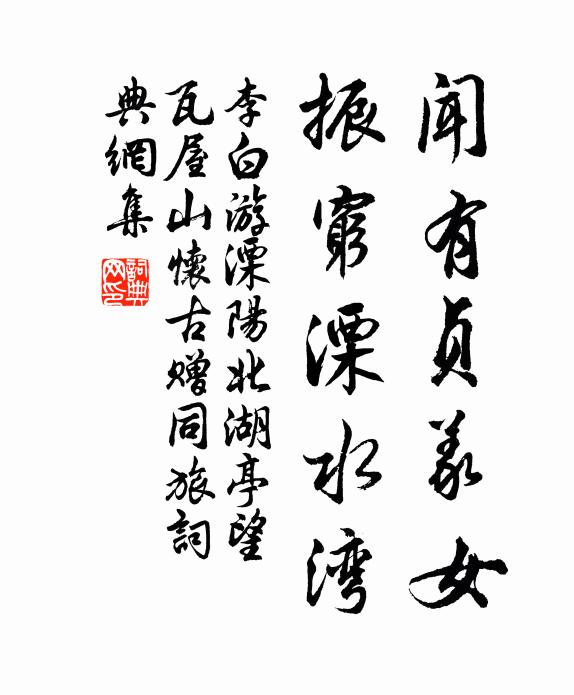 闻有贞义女
振穷溧水湾
李白游溧陽北湖亭望
瓦屋山懷古赠同旅詞
典網集
詞典网印